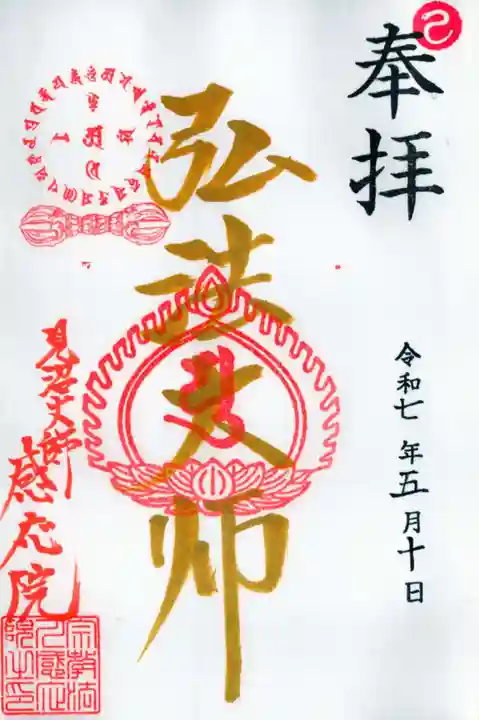 奉拝
令和七年五月十日
弘法大師
見沼大師
感応院